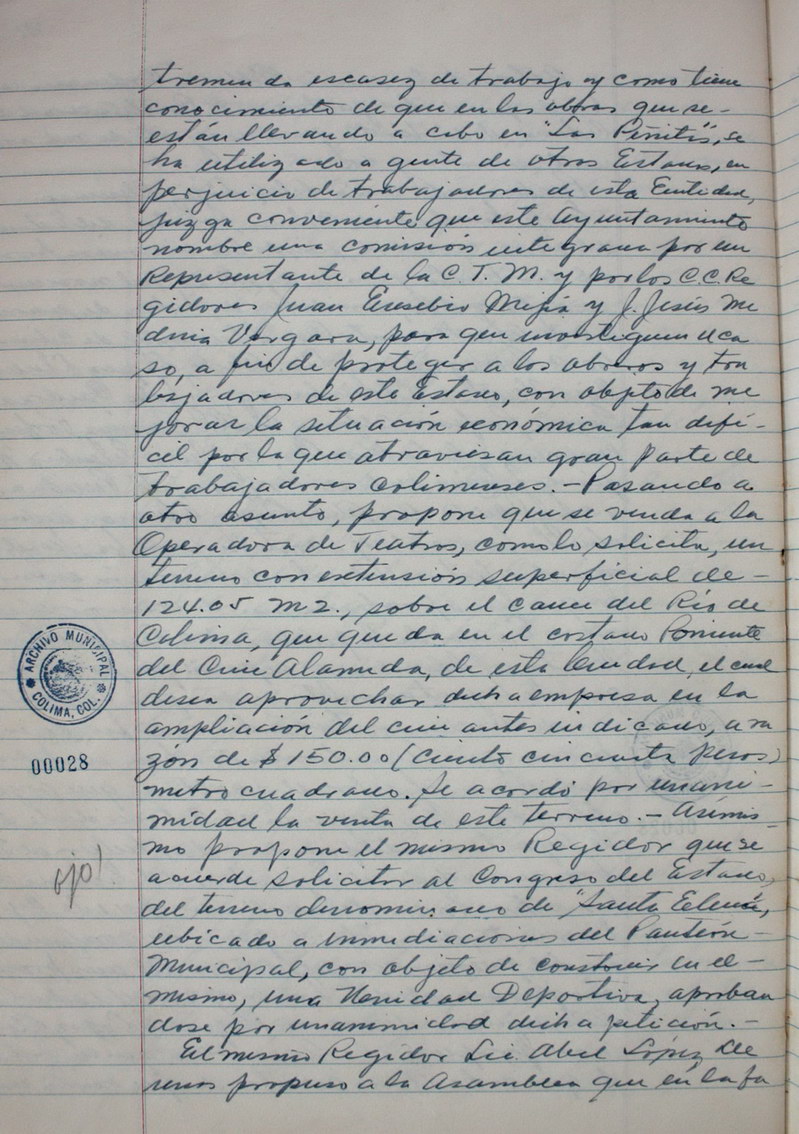 tremenda escasez de trabajo y como tiene
conocimiento de que en las obras que se-
están llevando a cabo en "Las Piñitas", se
ha utilizado a gente de otros Estados, en
perjuicio de trabajadores de esta Entidad,
juzga conveniente que este Ayuntamiento
nombre una comisión integrada por un
Representante de la C.T.M. y por los C.C. Re
gidores Juan Eusebio Mejía y J. Jesús Me
dria Vergara, para que investiguen el ca
so, a fin de proteger a los obreros y tra
bajadores de este Estado, con objeto de me
jorar la situación económica tan difí-
cil por la que atraviesan gran parte de
trabajadores colimenses.- Pasando a
otro asunto, propone que se venda a la
Operadora de Teatros, como lo solicita, un
terreno con extensión superficial de-
124.05 m2., sobre el cauce del Río de
Colima, que queda en el costado Poniente
del Cine Alameda, de esta Ciudad, el cual
desea aprovechar dicha empresa en la
ampliación del cine antes indicado, a ra
zón de $150.00 (Ciento cincuenta pesos)
metro cuadrado. Se acordó por unani-
midad la venta de este terreno.- Asimis
mo propone el mismo Regidor que se
acuerde solicitar al Congreso del Estado,
del terreno denominado de "Santa Elena",
ubicado a inmediaciones del Panteón-
Municipal, con objeto de construir en el-
mismo, una Unidad Deportiva, aproban
dose por unanimidad dicha petición.-
El mismo Regidor Lic. Abel López Lle
renas propuso a la Asamblea que en la fa
ARCHIVO MUNICIPAL
COLIMA, COL.
00028
ojo!